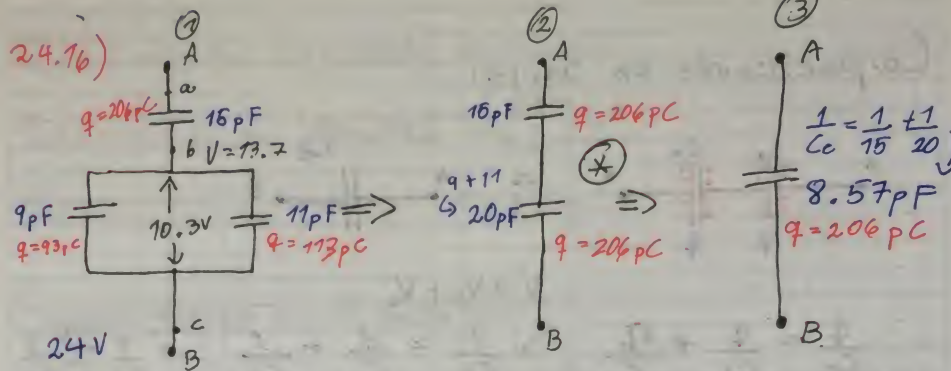 24.16)
①
A
a
q=206pC 15pF
b V=13.7
9pF
q=93pC
10.3V
11pF
q=113pC
c
24V
B
⇒
②
A
15pF q=206pC
9+11
↳ 20pF
q=206pC
B
*
⇒
③
A
1/Ce = 1/15 + 1/20
8.57pF
q=206pC
B